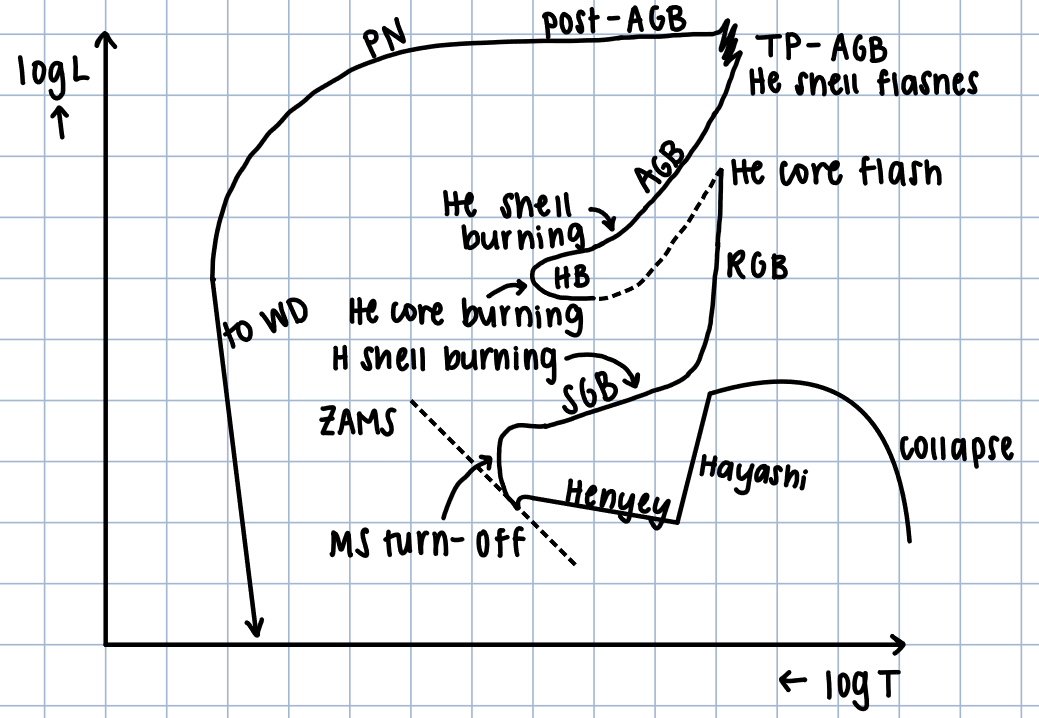 PN
post-AGB
log L
↑
TP-AGB
He shell flasnes
AGB
He core flash
He shell
burning
HB
RGB
He core burning
to WD
H shell burning
SGB
ZAMS
collapse
Hayashi
Henyey
MS turn-off
← log T